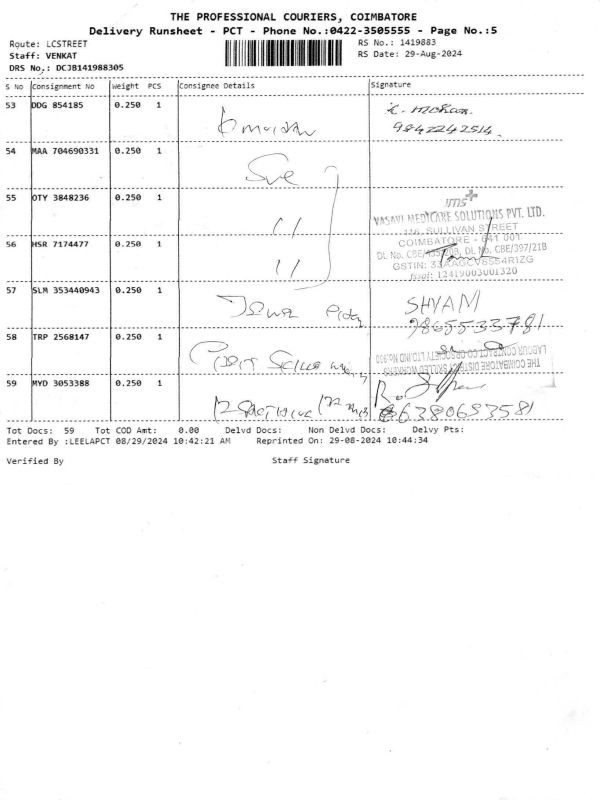 THE PROFESSIONAL COURIERS, COIMBATORE
Delivery Runsheet - PCT - Phone No.:0422-3505555 - Page No.:5
Route: LCSTREET
RS No.: 1419883
Staff: VENKAT
RS Date: 29-Aug-2024
DRS No,: DCJB141988305
S No Consignment No Weight PCS Consignee Details Signature
53 DDG 854185 0.250 1
K. mohan.
9842242514
54 MAA 704690331 0.250 1
55 OTY 3848236 0.250 1 11
VMS
VASAVI MEDICARE SOLUTIONS PVT. LTD.
116, SULLIVAN STREET
56 HSR 7174477 0.250 1 11
COIMBATORE - 641 001
GSTIN: 33AAGCV8554R1ZG
fssai: 12419003001320
57 SLM 353440943 0.250 1
SHYAM
9865533781
58 TRP 2568147 0.250 1
THE COIMBATORE DISTRICT SKILLED WORKERS
LABOUR CONTRACT CO-OP SOCIETY LTD IND NO.930
59 MYD 3053388 0.250 1
6380653581
Tot Docs: 59 Tot COD Amt: 0.00 Delvd Docs: Non Delvd Docs: Delvy Pts:
Entered By :LEELAPCT 08/29/2024 10:42:21 AM Reprinted On: 29-08-2024 10:44:34
Verified By Staff Signature